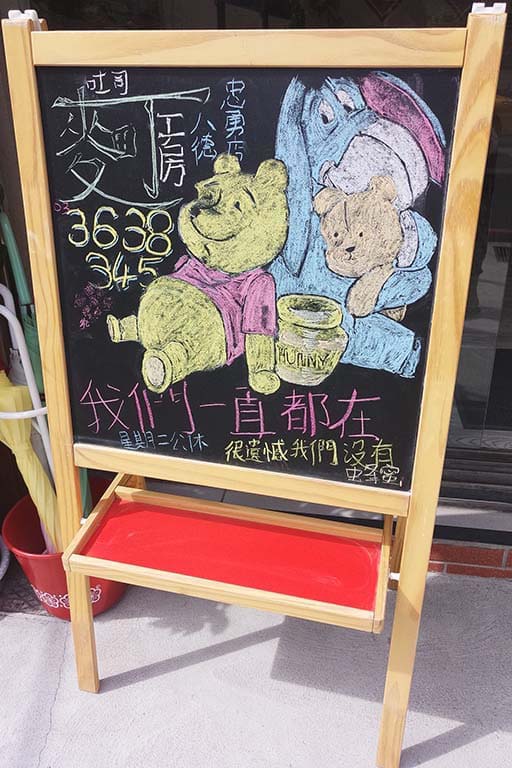 吐司
麥丁
工房
八德
忠勇店
03
3638
345
HUNNY
我們一直都在
星期二公休
很遺憾我們沒有
蜂蜜